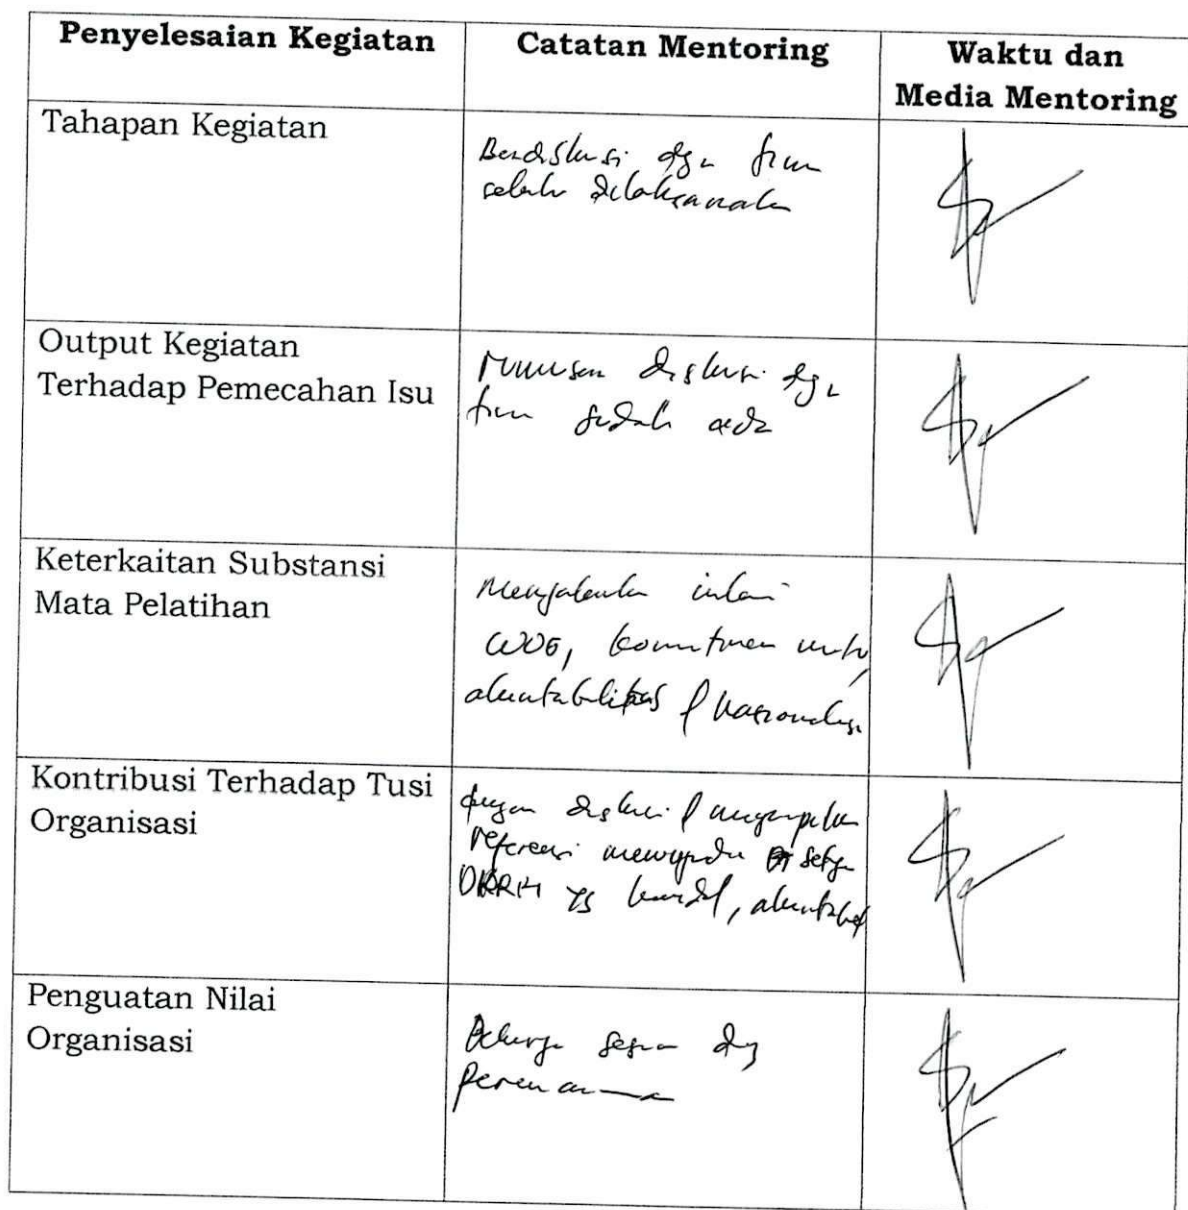 Penyelesaian Kegiatan
Catatan Mentoring
Waktu dan
Media Mentoring
Tahapan Kegiatan
Berdiskusi dgn tim
telah dilaksanakan
Output Kegiatan
Terhadap Pemecahan Isu
rumusan diskusi dgn
tim sudah ada
Keterkaitan Substansi
Mata Pelatihan
Menjalankan nilai
WOG, komitmen mutu,
akuntabilitas & nasionalisme
Kontribusi Terhadap Tusi
Organisasi
dengan diskusi & mengumpulkan
referensi
yg handal, akuntabel
Penguatan Nilai
Organisasi
Bekerja sesuai dg